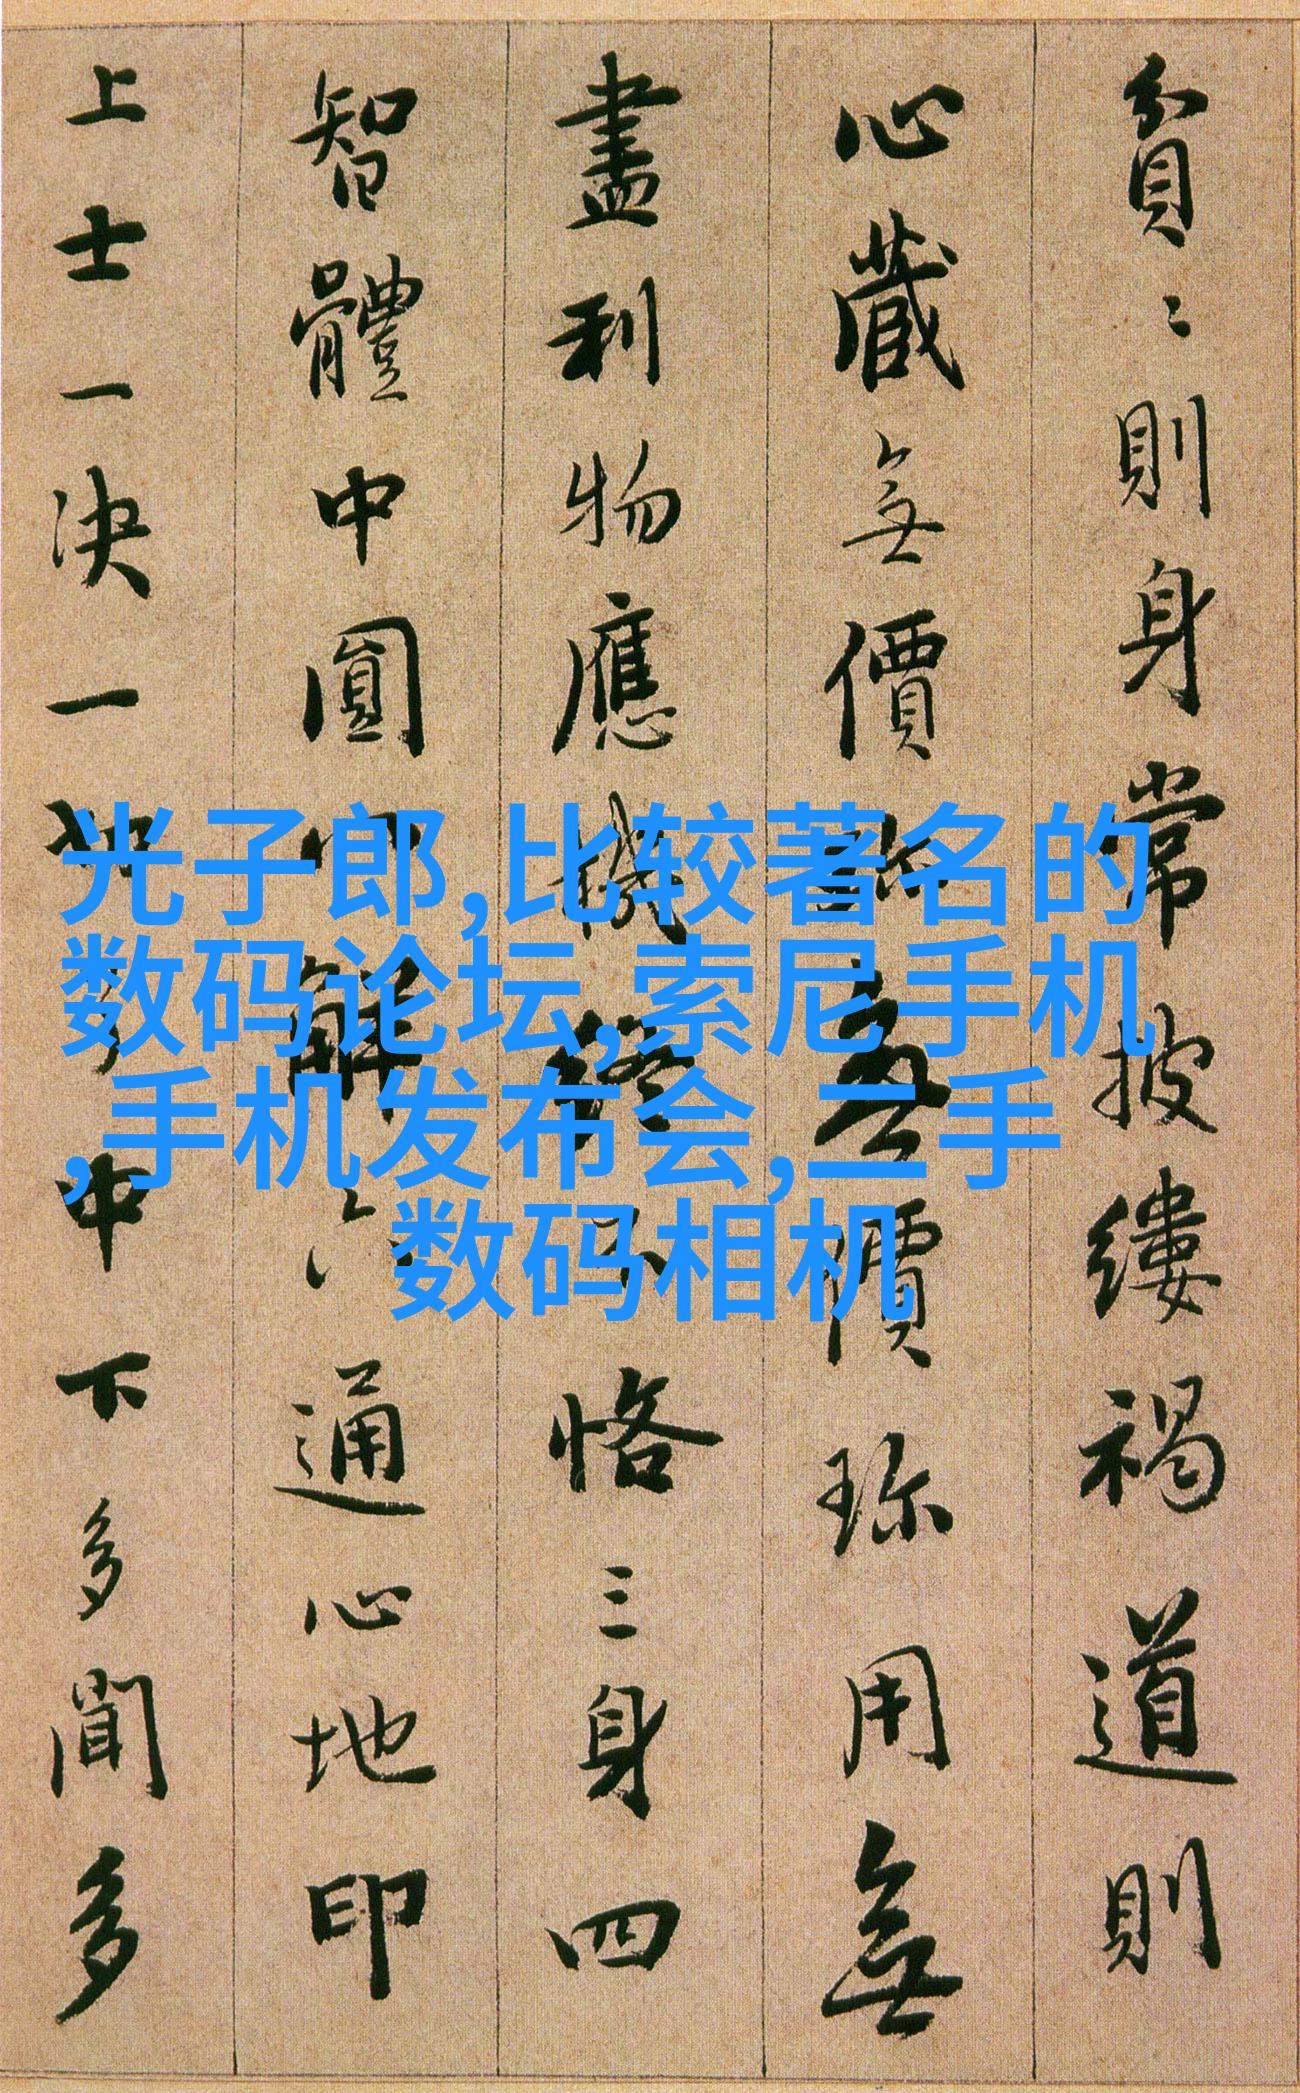 貧〻則身常披縷褐道則
心藏無價無價珎用無
盡利物應機終不恪三身四
智體中圓八解六通心地印
上士一決一切了中下多聞多
光子郎,比较著名的
数码论坛,索尼手机
,手机发布会,二手
数码相机